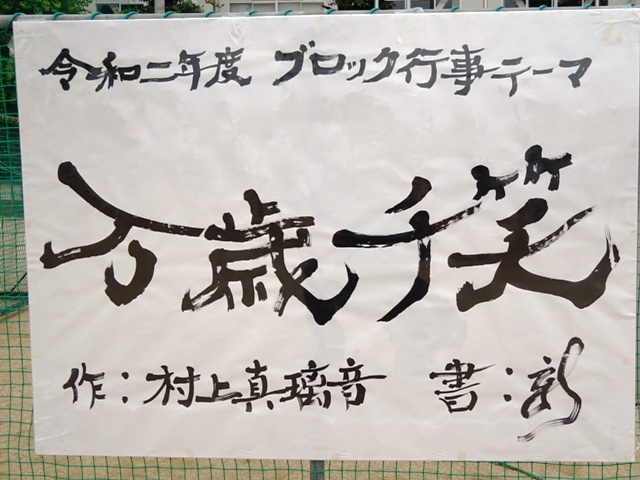 令和二年度 ブロック行事テーマ
万歳千笑
作:村上真璃音 書:新